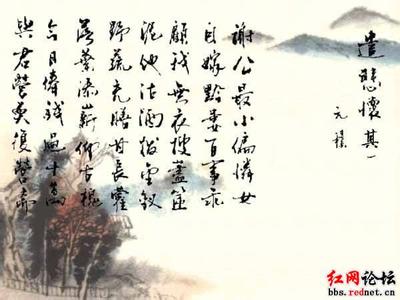 遣悲懷其一
元稹
謝公最小偏憐女
自嫁黔婁百事乖
顧我無衣搜藎篋
泥他沽酒拔金釵
野蔬充膳甘長藿
落葉添薪仰古槐
今日俸錢過十萬
與君營奠復營齋
红网论坛
bbs.rednet.cn